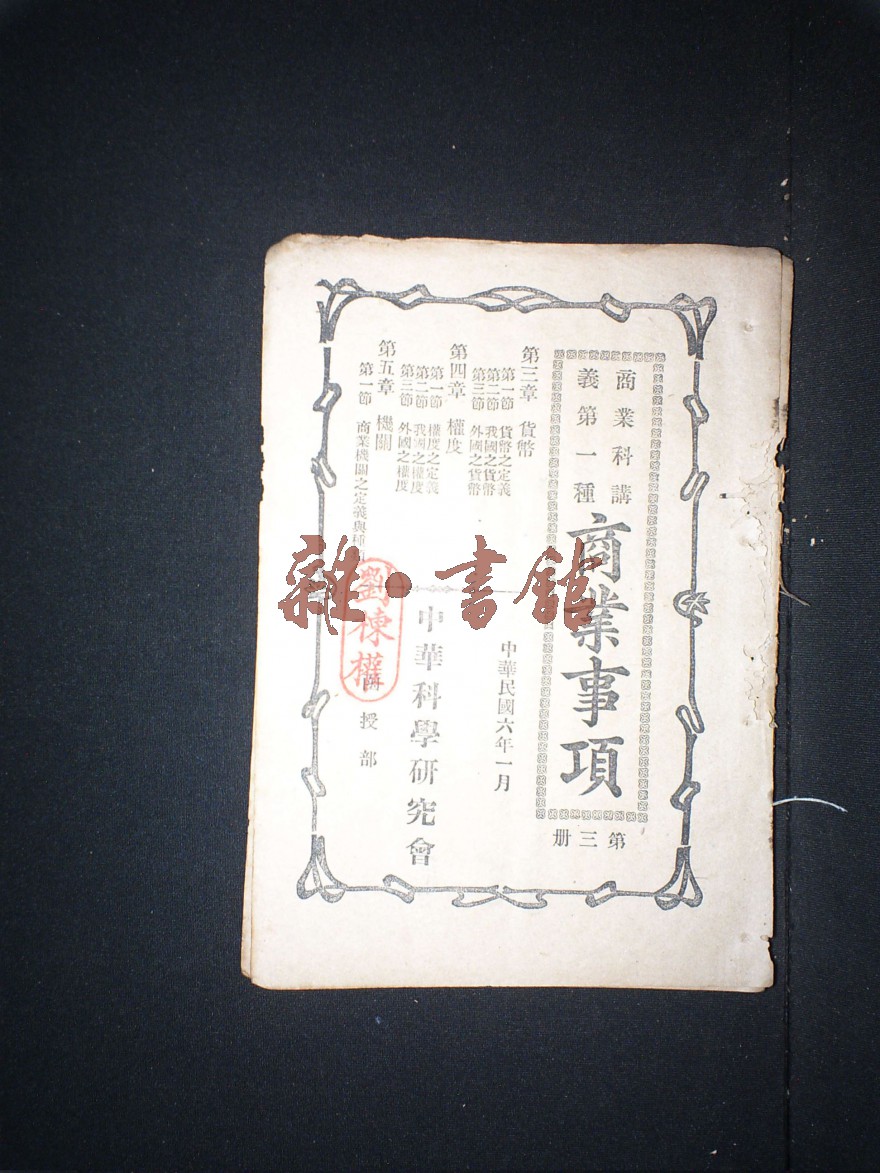 商業科講
義第一種
商業事項
第三册
第三章 貨幣
第一節 貨幣之定義
第二節 我國之貨幣
第三節 外國之貨幣
第四章 權度
第一節 權度之定義
第二節 我國之權度
第三節 外國之權度
第五章 機關
第一節 商業機關之定義與種
中華民國六年一月
中華科學研究會
授部
劉棟權
雜·書館